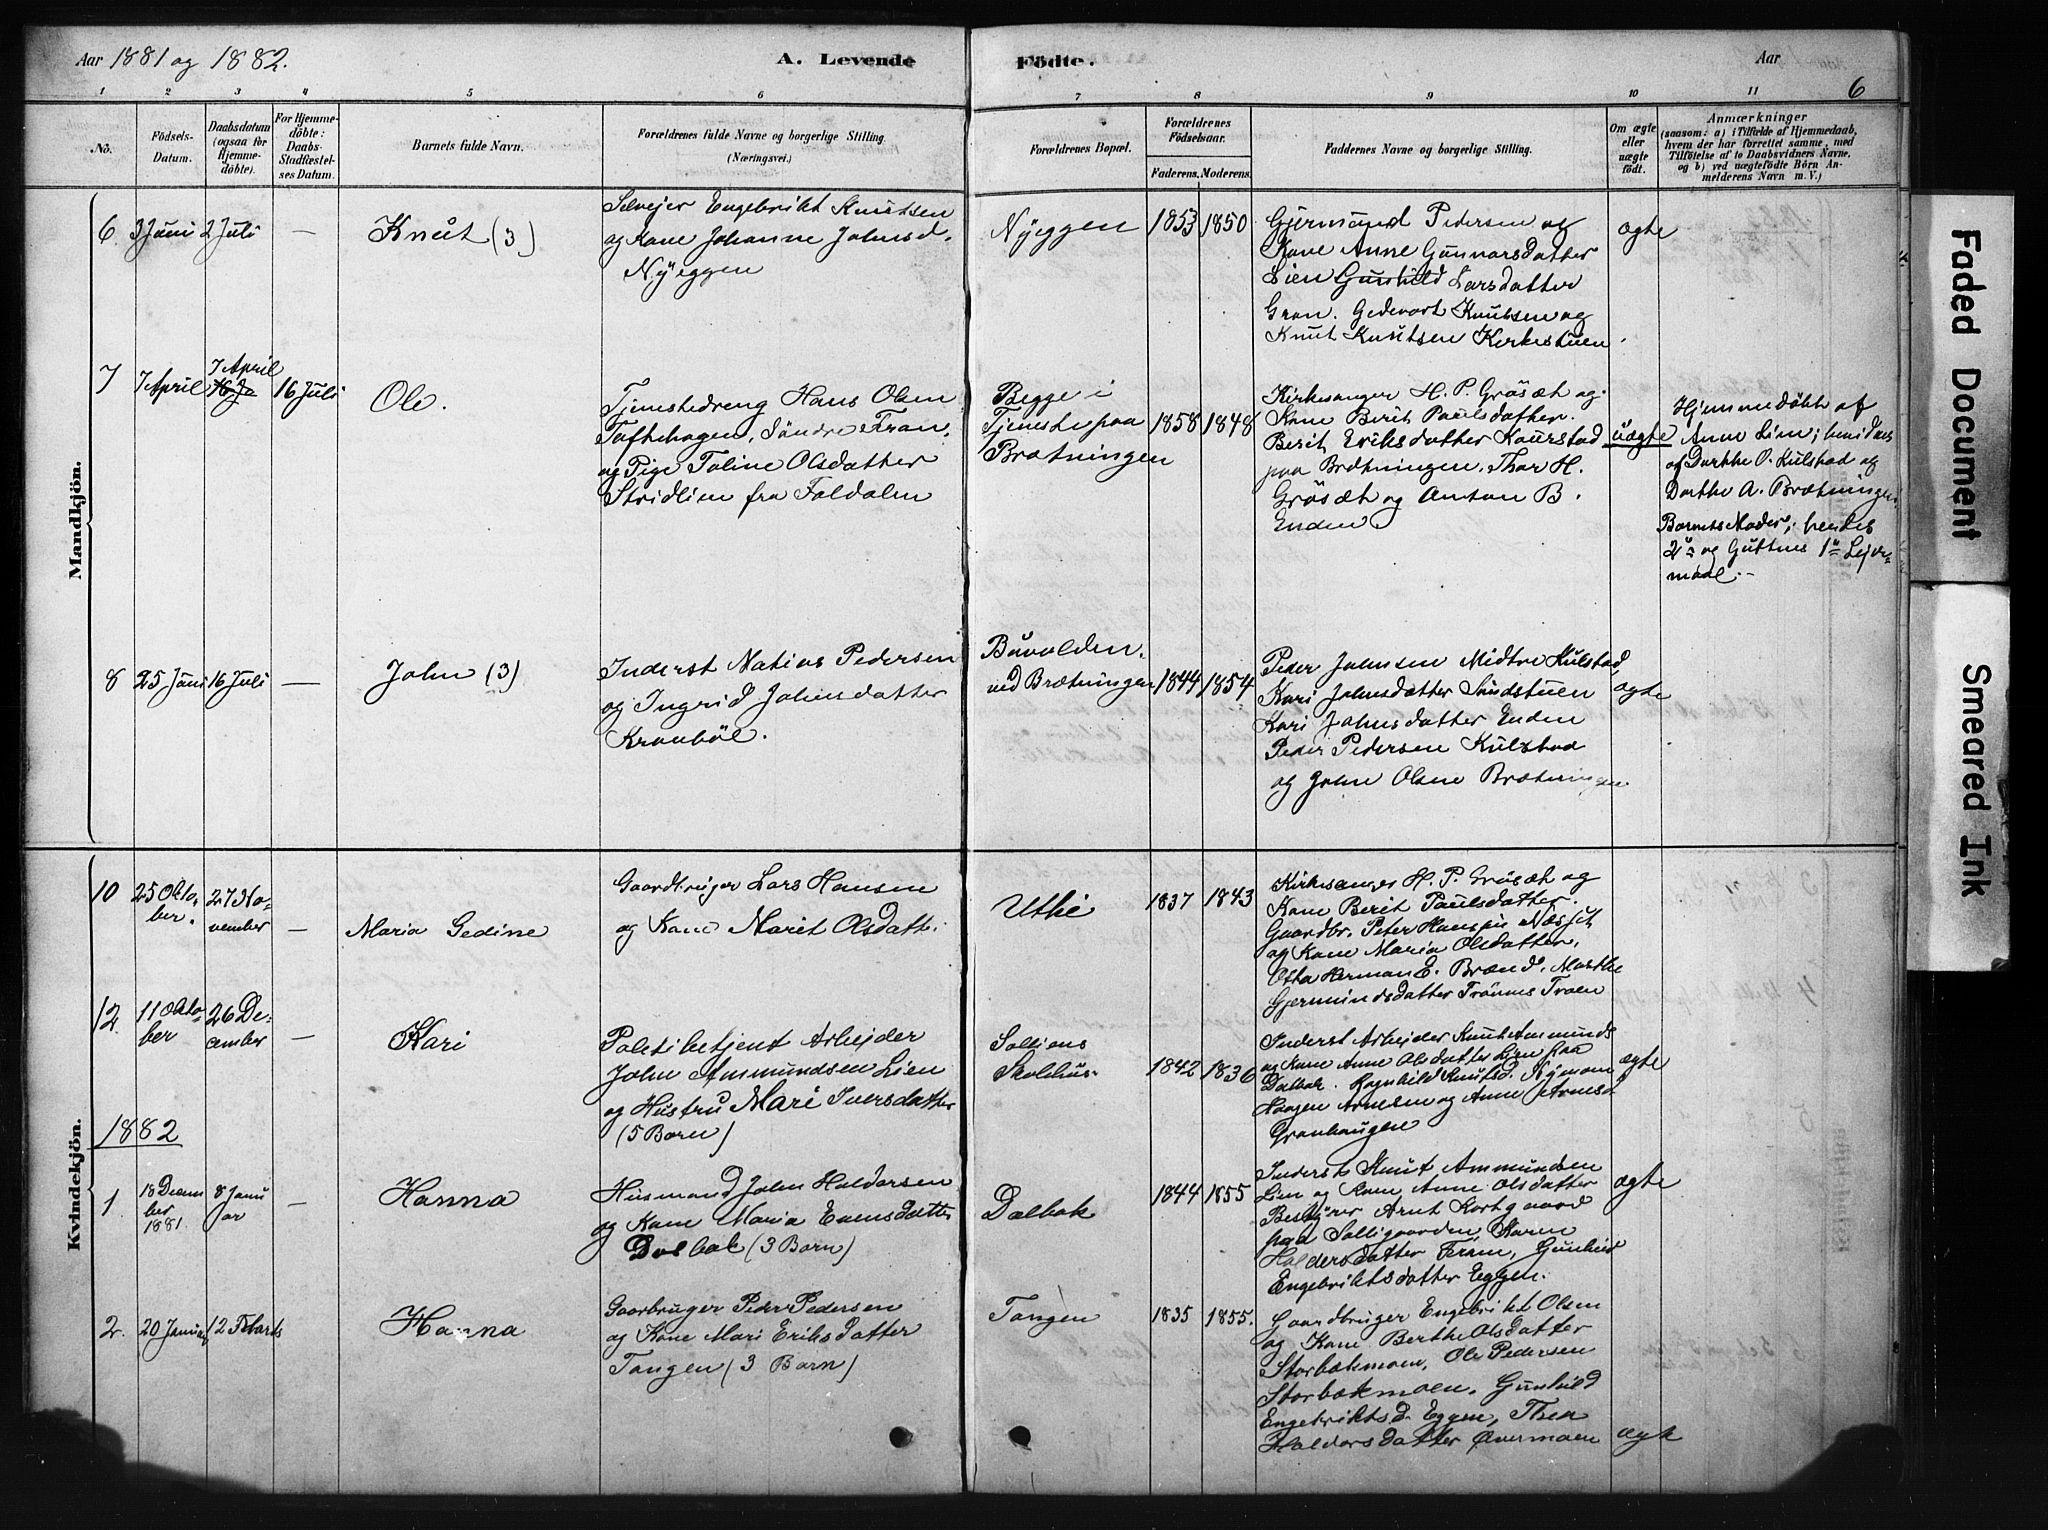 Aar 1881 og 1882.
A. Levende
Födte.
Aar
6
1 2 3 4 5 6 7 8 9 10 11
No.
Födsels-
Datum.
Daabsdatum
(ogsaa for
Hjemme-
döbte).
For Hjemme-
döbte:
Daabs-
Stadfæstel-
ses Datum.
Barnets fulde Navn.
Forældrenes fulde Navne og borgerlige Stilling.
(Næringsvei.)
Forældrenes Bopæl.
Forældrenes
Födselsaar.
Faderens. Moderens.
Faddernes Navne og borgerlige Stilling.
Om ægte
eller
uægte
födt.
Anmærkninger
(saasom: a) i Tilfælde af Hjemmedaab,
hvem der har forrettet samme, med
Tilföielse af to Daabsvidners Navne,
og b) ved uægtefödte Börn An-
melderens Navn m. V.)
Mandkjön.
6. 3 Juni 2 Juli — Knut (3)
Selvejer Engebrikt Knutsen
og Kone Johanne Johnsd.
Nyeggen
Nyeggen 1853 1850
Gjermund Pedersen og
Kone Anne Gunnarsdatter
Lien Gunhild Larsdatter
Gran. Gedevart Knutsen og
Knut Knutsen Kirkestuen.
ægte
7 7 April 7 April 16 Juli Ole.
Tjenestedreng Hans Olsen
Toftehagen, Söndre Fron,
og Pige Toline Olsdatter
Stridlien fra Foldalen
Begge i
Tjeneste paa
Brætningen
1858 1848
Kirkesanger H. P. Grösæt og
Kone Berit Paulsdatter.
Berit Eriksdatter Kaurstad
paa Brætningen. Thor H.
Grösæt og Anton B.
Enden
uægte
Hjemmedöbt af
Anne Lien;
af Dorthe O. Kulstad og
Dorthe A. Brætningen,
Barnets Moder; hendes
2n og Guttens 1n Lejer-
maal.-
8 25 Juni 16 Juli — John (3)
Inderst Matias Pedersen
og Ingrid Johnsdatter
Kronböl.
Buvolden.
ved Brætningen 1844 1854
Peder Johnsen Midtre Kulstad,
Kari Johnsdatter Sundstuen
Kari Johnsdatter Enden
Peder Pedersen Kulstad
og John Olsen Brætningen
ægte
Kvindekjön.
10 25 Okto-
ber. 27 No-
vember — Maria Gedine
Gaardbruger Lars Hansen
og Kone Marit Olsdatt.
Uthi 1837 1843
Kirkesanger H. P. Grösæt og
Kone Berit Paulsdatter.
Gaardbr. Peter Hansen Næsset
og Kone Maria Olsdatter,
Otta Herman E. Brænd, Marthe
Gjermundsdatter Trönnes Troen
12. 11 Okto-
ber 26 De-
cember — Kari
Politibetjent Arbejder
John Ammundsen Lien
og Hustru Mari Iversdatter
(5 Barn)
Sollien
Skolehus. 1842 1836
Inderst Arbejder Knut Ammunds
og Kone Anne Olsdatter Lien paa
Dalbak. Ragnhild Knutsd. Nymoen
Haagen Arnesen og Anne Arnesd.
Granhaugen
ægte
1882
1. 18 Decem
ber
1881. 8 Janu
ar — Hanna
Husmand John Haldorsen
og Kone Maria Evensdatter
Dalbak (3 Barn)
Dalbak 1844 1855
Inderst Knut Ammundsen
Lien og Kone Anne Olsdatter
Bestyrer Arnt Kortgaard
paa Solligaarden, Karen
Haldorsdatter Fram, Gunhild
Engebriktsdatter Eggen.
ægte
2. 20 Januar 12 Marts Hanna
Gaarbruger Peder Pedersen
og Kone Mari Eriksdatter
Tangen (3 Barn)
Tangen 1835 1855.
Gaardbruger Engebrikt Olsen
og Kone Berthe Olsdatter
Storbækmoen, Ole Pedersen
Storbækmoen. Gunhild
Engebriktsd. Eggen, Thea
Haldorsdatter Øvermoen
ægte
Faded Document
Smeared Ink